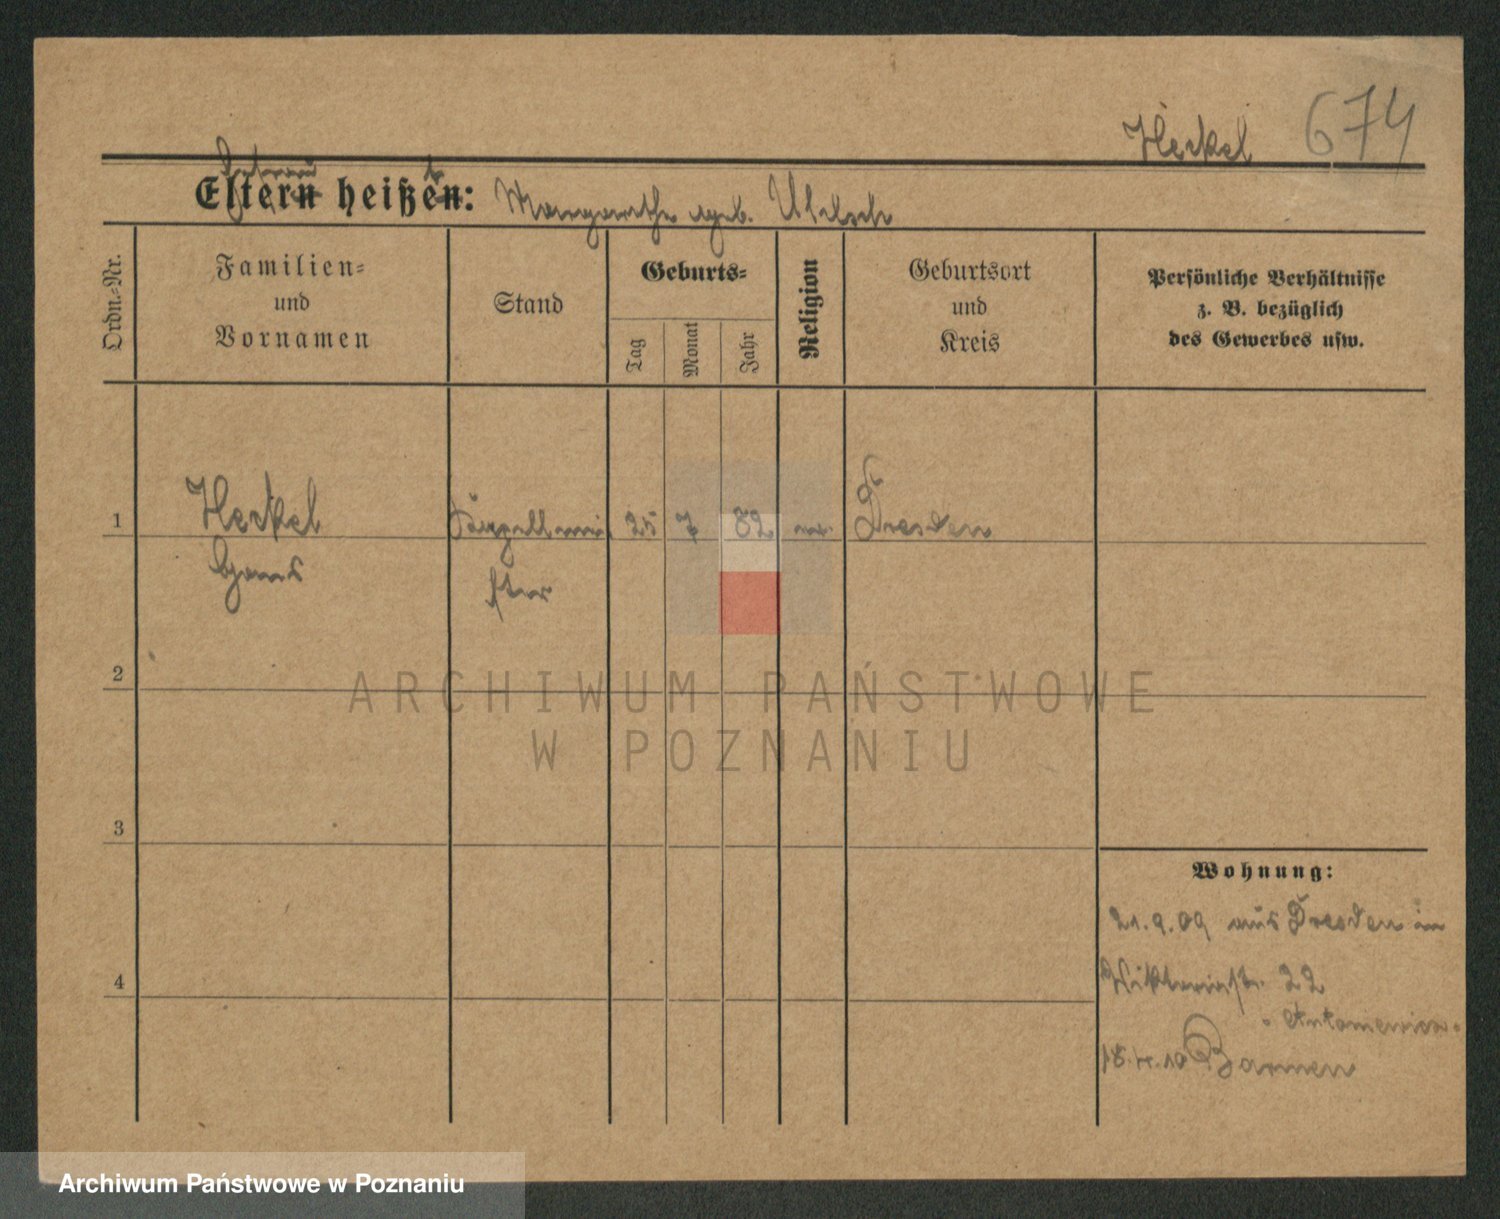 Herkel 674
Ehefrau
Eltern heißen: t
Margarethe geb.
Ordn.-Nr.
Familien-
und
Vornamen
Stand
Geburts-
Tag
Monat
Jahr
Religion
Geburtsort
und
Kreis
Persönliche Verhältnisse
z. B. bezüglich
des Gewerbes usw.
1 Herkel Kapellmei 25 7 82 ev. Dresden
Hans ster
2
ARCHIWUM PAŃSTWOWE
W POZNANIU
3
4
Wohnung:
21.9.09 aus Dresden in
Viktoriastr. 22
18.4.10 Barmen
Archiwum Państwowe w Poznaniu